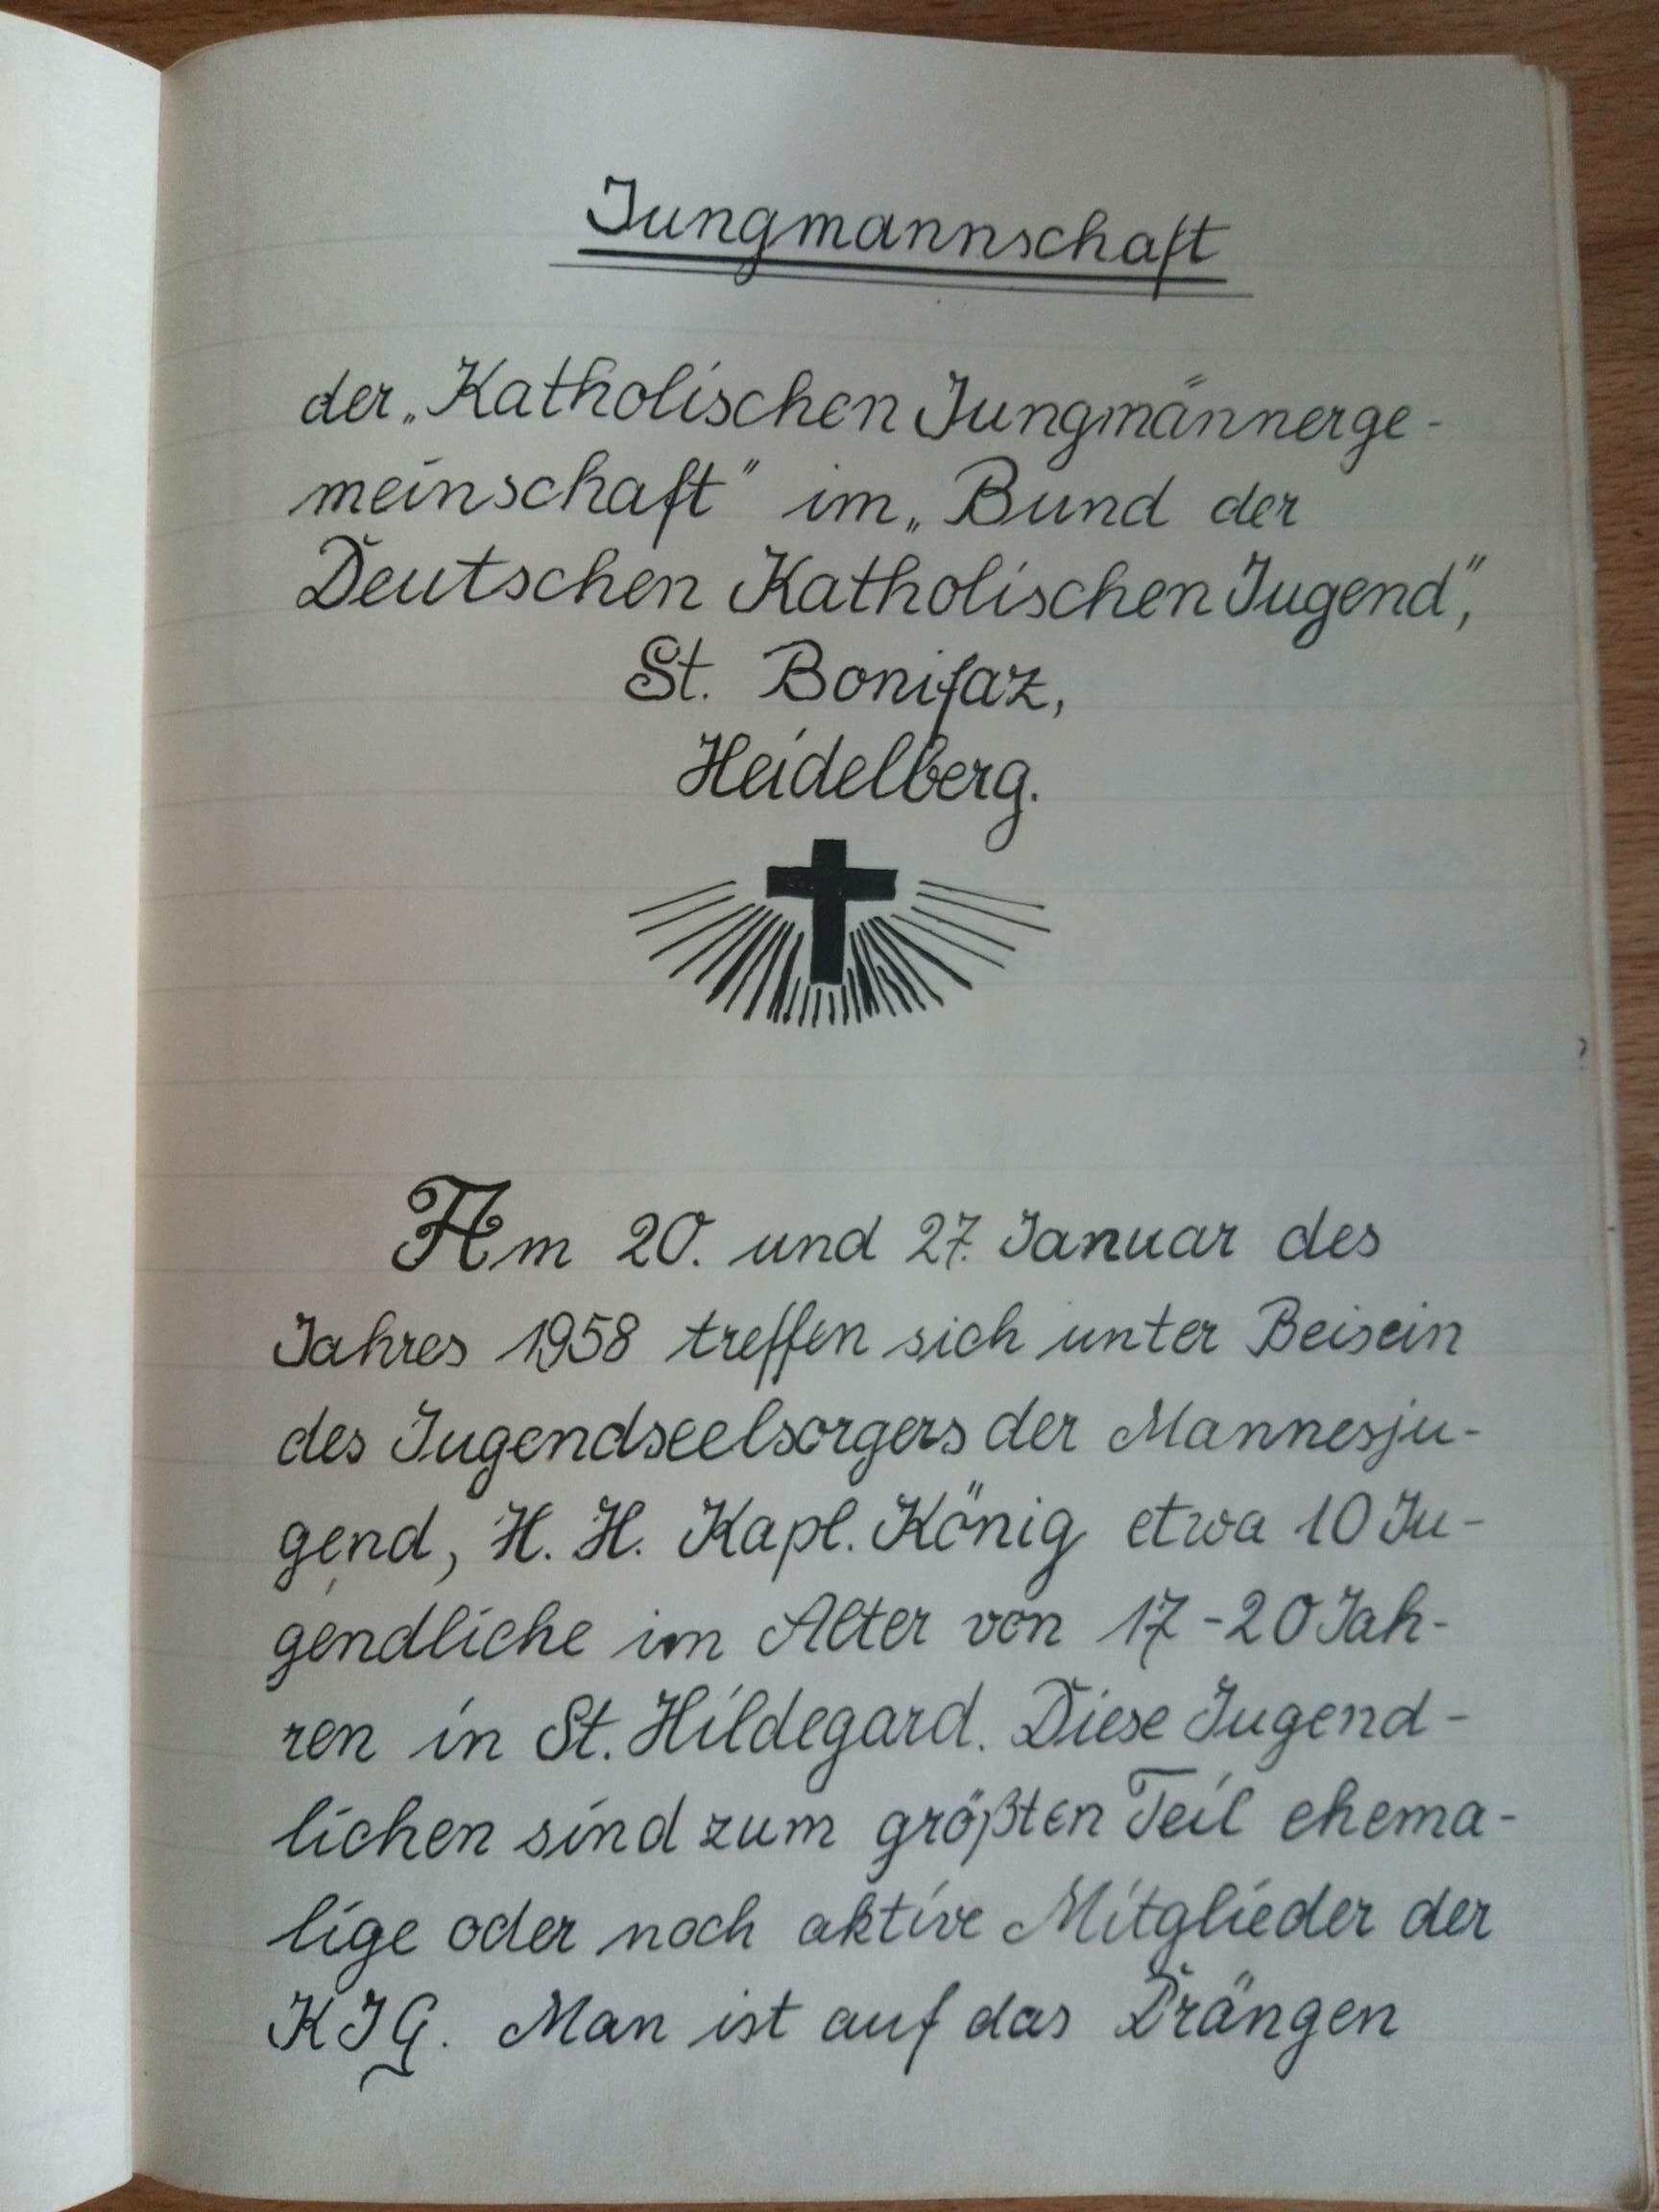 Jungmannschaft
der „Katholischen Jungmännerge-
meinschaft" im „Bund der
Deutschen Katholischen Jugend",
St. Bonifaz,
Heidelberg.
Am 20. und 27. Januar des
Jahres 1958 treffen sich unter Beisein
des Jugendseelsorgers der Mannesju-
gend, H. H. Kapl. König etwa 10 Ju-
gendliche im Alter von 17-20 Jah-
ren in St. Hildegard. Diese Jugend-
lichen sind zum größten Teil ehema-
lige oder noch aktive Mitglieder der
KJG. Man ist auf das Drängen